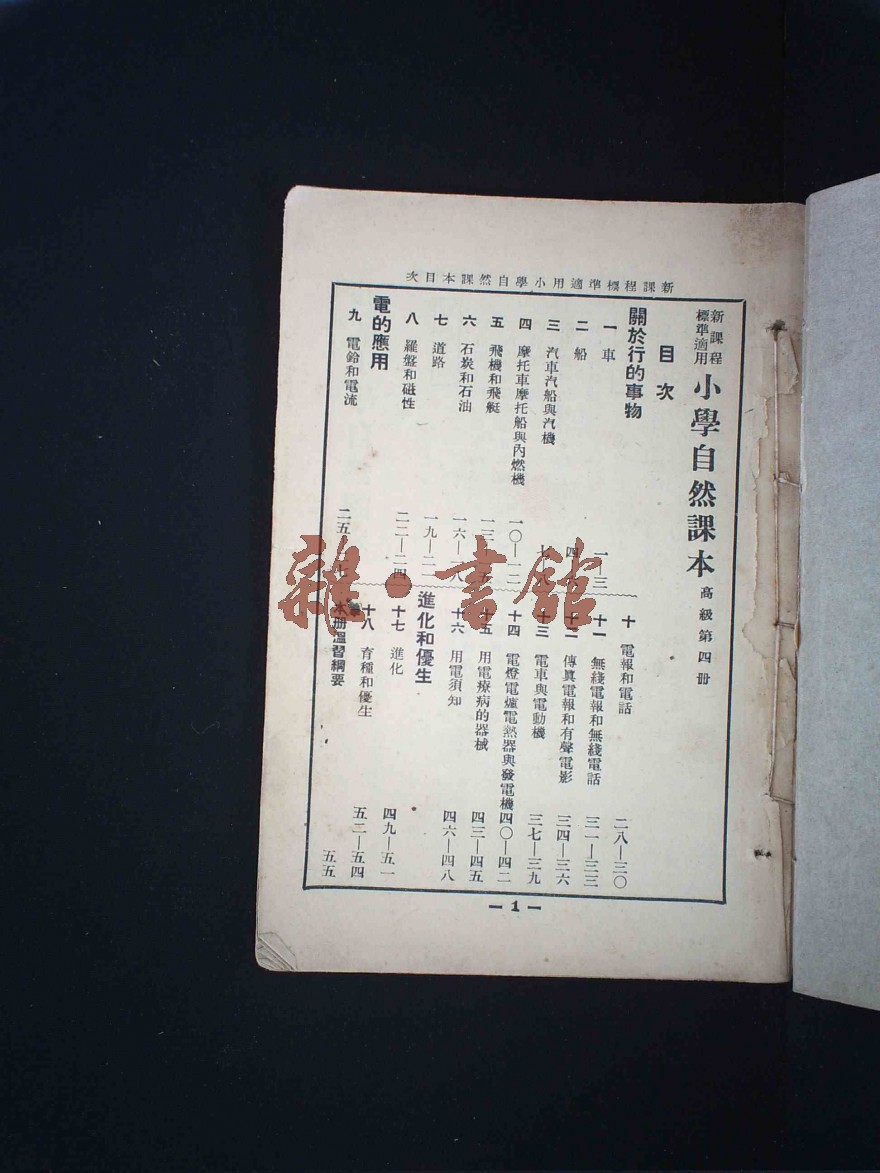 新課程標準適用小學自然課本目次
新課程標準適用 小學自然課本 高級第四冊
目次
關於行的事物
一 車 一—三
二 船 四
三 汽車汽船與汽機 七 八
四 摩托車摩托船與內燃機 一〇—一二
五 飛機和飛艇 一三 五
六 石炭和石油 一六—一八
七 道路 一九—二一
八 羅盤和磁性 二二—二四
電的應用
九 電鈴和電流 二五 二七
十 電報和電話 二八—三〇
十一 無綫電報和無綫電話 三一—三三
十二 傳眞電報和有聲電影 三四—三六
十三 電車與電動機 三七—三九
十四 電燈電爐電熱器與發電機 四〇—四二
十五 用電療病的器械 四三—四五
十六 用電須知 四六—四八
進化和優生
十七 進化 四九—五一
十八 育種和優生 五二—五四
本冊溫習綱要 五五
—1—
雜·書館